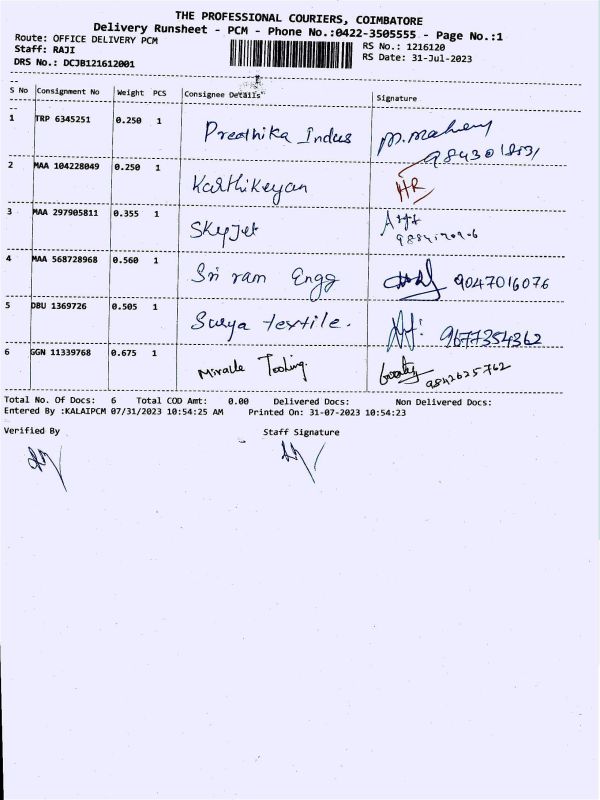 THE PROFESSIONAL COURIERS, COIMBATORE
Delivery Runsheet - PCM - Phone No.:0422-3505555 - Page No.:1
Route: OFFICE DELIVERY PCM
RS No.: 1216120
Staff: RAJI
RS Date: 31-Jul-2023
DRS No.: DCJB121612001
S No Consignment No Weight PCS Consignee Details Signature
1 TRP 6345251 0.250 1 Preethika Indus
2 MAA 104228049 0.250 1 Karthikeyan HR
3 MAA 297905811 0.355 1 SkyJet
4 MAA 568728968 0.560 1 Sri ram Engg 9047016076
5 DBU 1369726 0.505 1 Surya textile. 9677354362
6 GGN 11339768 0.675 1 Miracle Tooling. 9842625762
Total No. Of Docs: 6 Total COD Amt: 0.00 Delivered Docs: Non Delivered Docs:
Entered By :KALAIPCM 07/31/2023 10:54:25 AM Printed On: 31-07-2023 10:54:23
Verified By Staff Signature